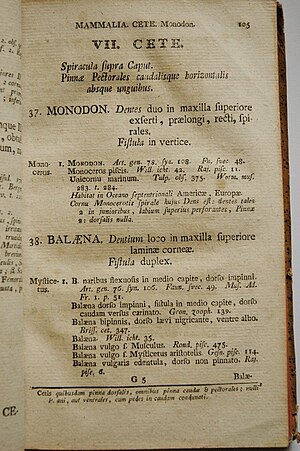 MAMMALIA. CETE. Monodon. 105
VII. CETE.
Spiracula supra Caput.
Pinnæ Pectorales caudalisque horizontalis
absque unguibus.
37. MONODON. Dentes duo in maxilla superiore
exserti, prælongi, recti, spi-
rales.
Fistula in vertice.
Mono- 1. MONODON. Art. gen. 78. syn. 108. Fn. svec. 48.
ceros. Monoceros piscis. Will. icht. 42. Raj. pisc. 11.
Unicornu marinum. Tulp. obs. 375. Worm. mus.
283. t. 284.
Habitat in Oceano septentrionali Americæ, Europæ
Cornu Monocerotis spirale hujus Dens est: dentes tales
2 in junioribus, labium superius perforantes, Pinna
dorsalis nulla.
38. BALÆNA. Dentium loco in maxilla superiore
laminæ corneæ.
Fistula duplex.
Mystice- 1. B. naribus flexuosis in medio capite, dorso impinni.
tus. Art. gen. 76. syn. 106. Faun. svec. 49. Mus. Ad.
Fr. 1. p. 51.
Balæna dorso impinni, fistula in medio capite, dorso
caudam versus carinato. Gron. zooph. 139.
Balæna bipinnis, dorso lævi nigricante, ventre albo.
Briss. cet. 347.
Balæna. Will. icht. 35.
Balæna vulgo f. Musculus. Rond. pisc. 475.
Balæna vulgo f. Mysticetus aristotelis. Gesn. pisc. 114.
Balæna vulgaris edentula, dorso non pinnato. Raj.
pisc. 6.
G 5 Balæ-
Cetis quibusdam pinna dorsalis, omnibus pinna caudæ & pectorales; nulli
P. ani, aut ventrales, cum pedes in caudam coadunati.
CE-